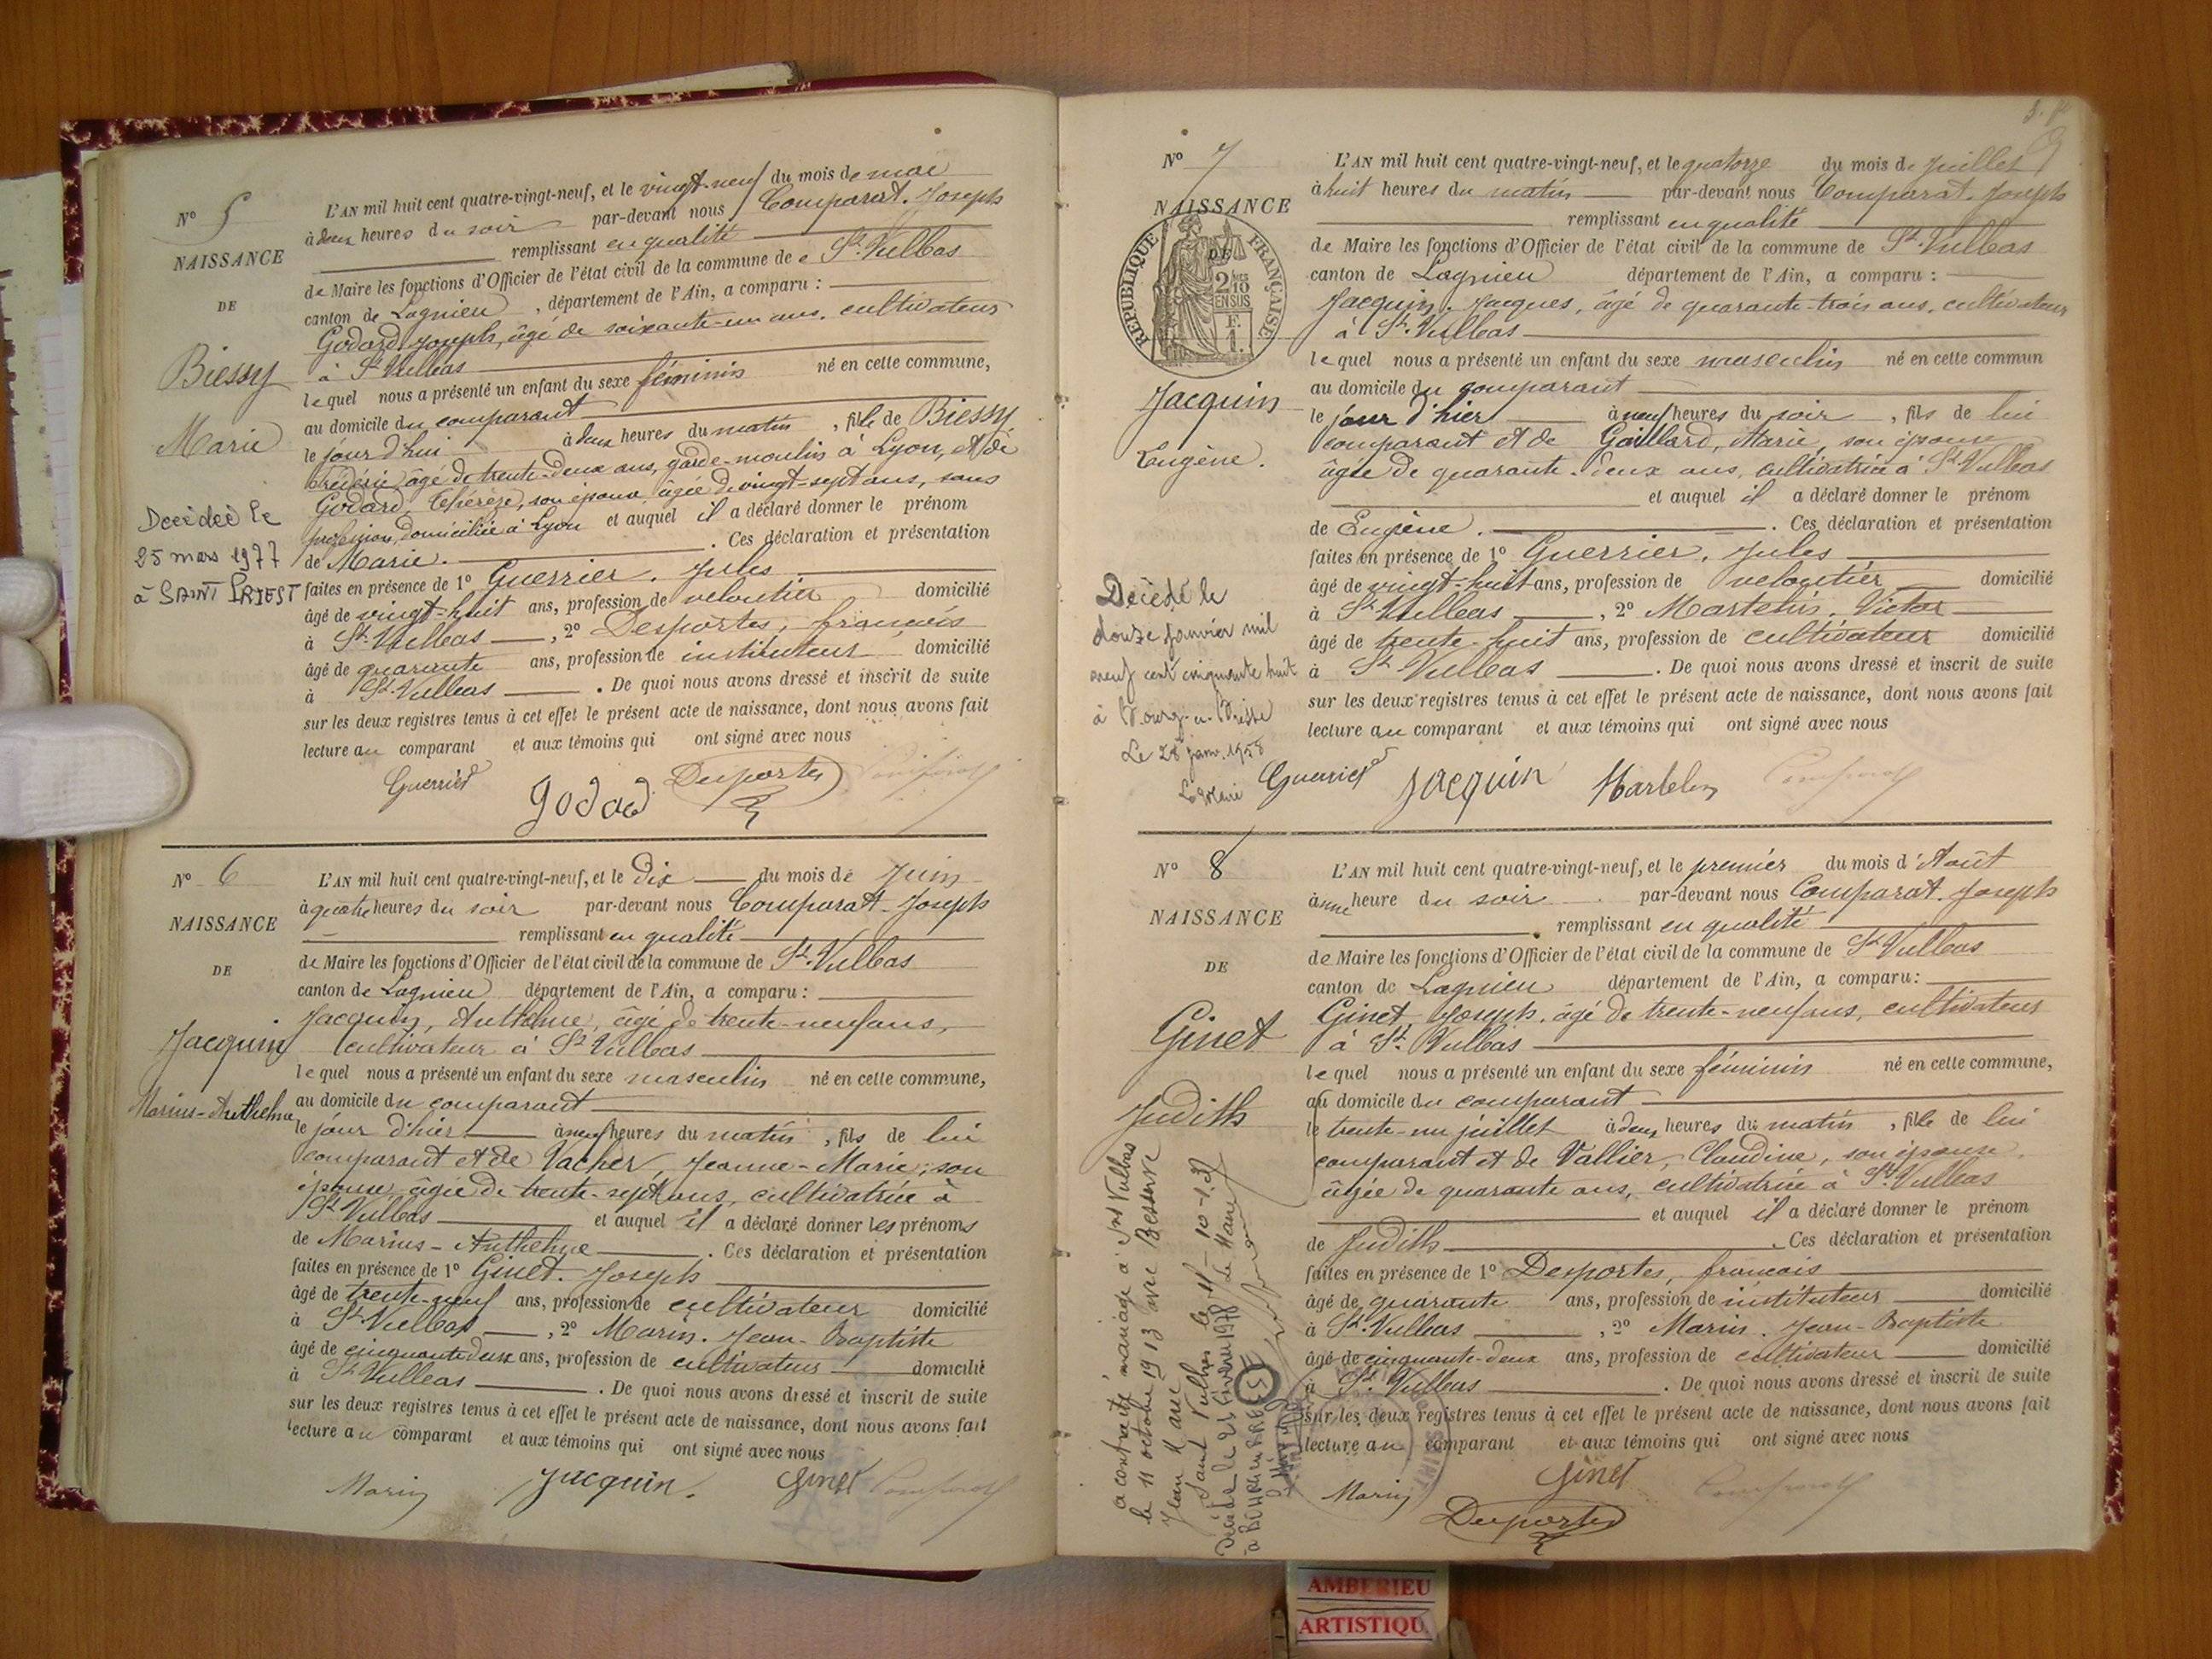 N° 5
NAISSANCE
DE
Biessy
Marie
Decédée le
25 mars 1977
à SAINT PRIEST
L'AN mil huit cent quatre-vingt-neuf, et le vingt-neuf du mois de mai
à deux heures du soir par-devant nous Comparat. Joseph
remplissant en qualité
de Maire les fonctions d'Officier de l'état civil de la commune de St. Vulbas
canton de Lagnieu, département de l'Ain, a comparu :
Godard Joseph, âgé de soixante-un ans, cultivateur
à St Vulbas
lequel nous a présenté un enfant du sexe féminin né en cette commune,
au domicile du comparant
le jour d'hui à deux heures du matin, fille de Biessy
Frédéric âgé de trente-deux ans, garde-moulin à Lyon, et de
Godard, Thérèze, son épouse, âgée de vingt-sept ans, sans
profession, domiciliée à Lyon et auquel il a déclaré donner le prénom
de Marie. Ces déclaration et présentation
faites en présence de 1° Guerrier. Jules
âgé de vingt-huit ans, profession de veloutier domicilié
à St. Vulbas, 2° Desportes, françois
âgé de quarante ans, profession de instituteur domicilié
à St. Vulbas. De quoi nous avons dressé et inscrit de suite
sur les deux registres tenus à cet effet le présent acte de naissance, dont nous avons fait
lecture au comparant et aux témoins qui ont signé avec nous
Guerrier Godard Desportes Comparat
N° 6
NAISSANCE
DE
Jacquin
Marius-Anthelme
L'AN mil huit cent quatre-vingt-neuf, et le dix du mois de Juin
à quatre heures du soir par-devant nous Comparat. Joseph
remplissant en qualité
de Maire les fonctions d'Officier de l'état civil de la commune de St. Vulbas
canton de Lagnieu département de l'Ain, a comparu :
Jacquin, Anthelme, âgé de trente-neuf ans,
cultivateur à St Vulbas
lequel nous a présenté un enfant du sexe masculin né en cette commune,
au domicile du comparant
le jour d'hier à neuf heures du matin, fils de lui
comparant et de Vacher, Jeanne-Marie, son
épouse, âgée de trente-sept ans, cultivatrice à
St Vulbas et auquel il a déclaré donner les prénoms
de Marius-Anthelme. Ces déclaration et présentation
faites en présence de 1° Ginet. Joseph
âgé de trente-neuf ans, profession de cultivateur domicilié
à St. Vulbas, 2° Marin. Jean-Baptiste
âgé de cinquante deux ans, profession de cultivateur domicilié
à St. Vulbas. De quoi nous avons dressé et inscrit de suite
sur les deux registres tenus à cet effet le présent acte de naissance, dont nous avons fait
lecture au comparant et aux témoins qui ont signé avec nous
Marin Jacquin. Ginet Comparat
N° 7
NAISSANCE
DE
REPUBLIQUE FRANÇAISE
2/10
EN SUS
F.
1.
Jacquin
Eugène.
Décédé le
douze janvier mil
neuf cent cinquante huit
à Bourg-en-Bresse
Le 28 janv. 1958
Le Maire
L'AN mil huit cent quatre-vingt-neuf, et le quatorze du mois de Juillet
à huit heures du matin par-devant nous Comparat. Joseph
remplissant en qualité
de Maire les fonctions d'Officier de l'état civil de la commune de St. Vulbas
canton de Lagnieu département de l'Ain, a comparu :
Jacquin. Jacques, âgé de quarante-trois ans, cultivateur
à St. Vulbas
lequel nous a présenté un enfant du sexe masculin né en cette commun
au domicile du comparant
le jour d'hier à neuf heures du soir, fils de lui
comparant et de Gaillard, Marie, son épouse
âgée de quarante-deux ans, cultivatrice à St Vulbas
et auquel il a déclaré donner le prénom
de Eugène. Ces déclaration et présentation
faites en présence de 1° Guerrier. Jules
âgé de vingt-huit ans, profession de veloutier domicilié
à St. Vulbas, 2° Martelin, Victor
âgé de trente-huit ans, profession de cultivateur domicilié
à St Vulbas. De quoi nous avons dressé et inscrit de suite
sur les deux registres tenus à cet effet le présent acte de naissance, dont nous avons fait
lecture au comparant et aux témoins qui ont signé avec nous
Guerrier Jacquin Martelin Comparat
N° 8
NAISSANCE
DE
Ginet
Judith
a contracté mariage à Saint Vulbas
le 11 octobre 1913 avec Besserve
Jean Marie
Saint Vulbas le 10-1.
Le Maire
Décédée le 25 Février 1978
à BOURG en BRESSE
L'AN mil huit cent quatre-vingt-neuf, et le premier du mois d'Août
à une heure du soir par-devant nous Comparat. Joseph
remplissant en qualité
de Maire les fonctions d'Officier de l'état civil de la commune de St Vulbas
canton de Lagnieu département de l'Ain, a comparu :
Ginet Joseph, âgé de trente-neuf ans, cultivateur
à St. Vulbas
lequel nous a présenté un enfant du sexe féminin né en cette commune,
au domicile du comparant
le trente-un juillet à deux heures du matin, fille de lui
comparant et de Vallier, Claudine, son épouse,
âgée de quarante ans, cultivatrice à St. Vulbas
et auquel il a déclaré donner le prénom
de Judith. Ces déclaration et présentation
faites en présence de 1° Desportes, francois
âgé de quarante ans, profession de instituteur domicilié
à St. Vulbas, 2° Marin. Jean-Baptiste
âgé de cinquante-deux ans, profession de cultivateur domicilié
à St. Vulbas. De quoi nous avons dressé et inscrit de suite
sur les deux registres tenus à cet effet le présent acte de naissance, dont nous avons fait
lecture au comparant et aux témoins qui ont signé avec nous
Marin Ginet Comparat
Desportes
AMBERIEU
ARTISTIQU